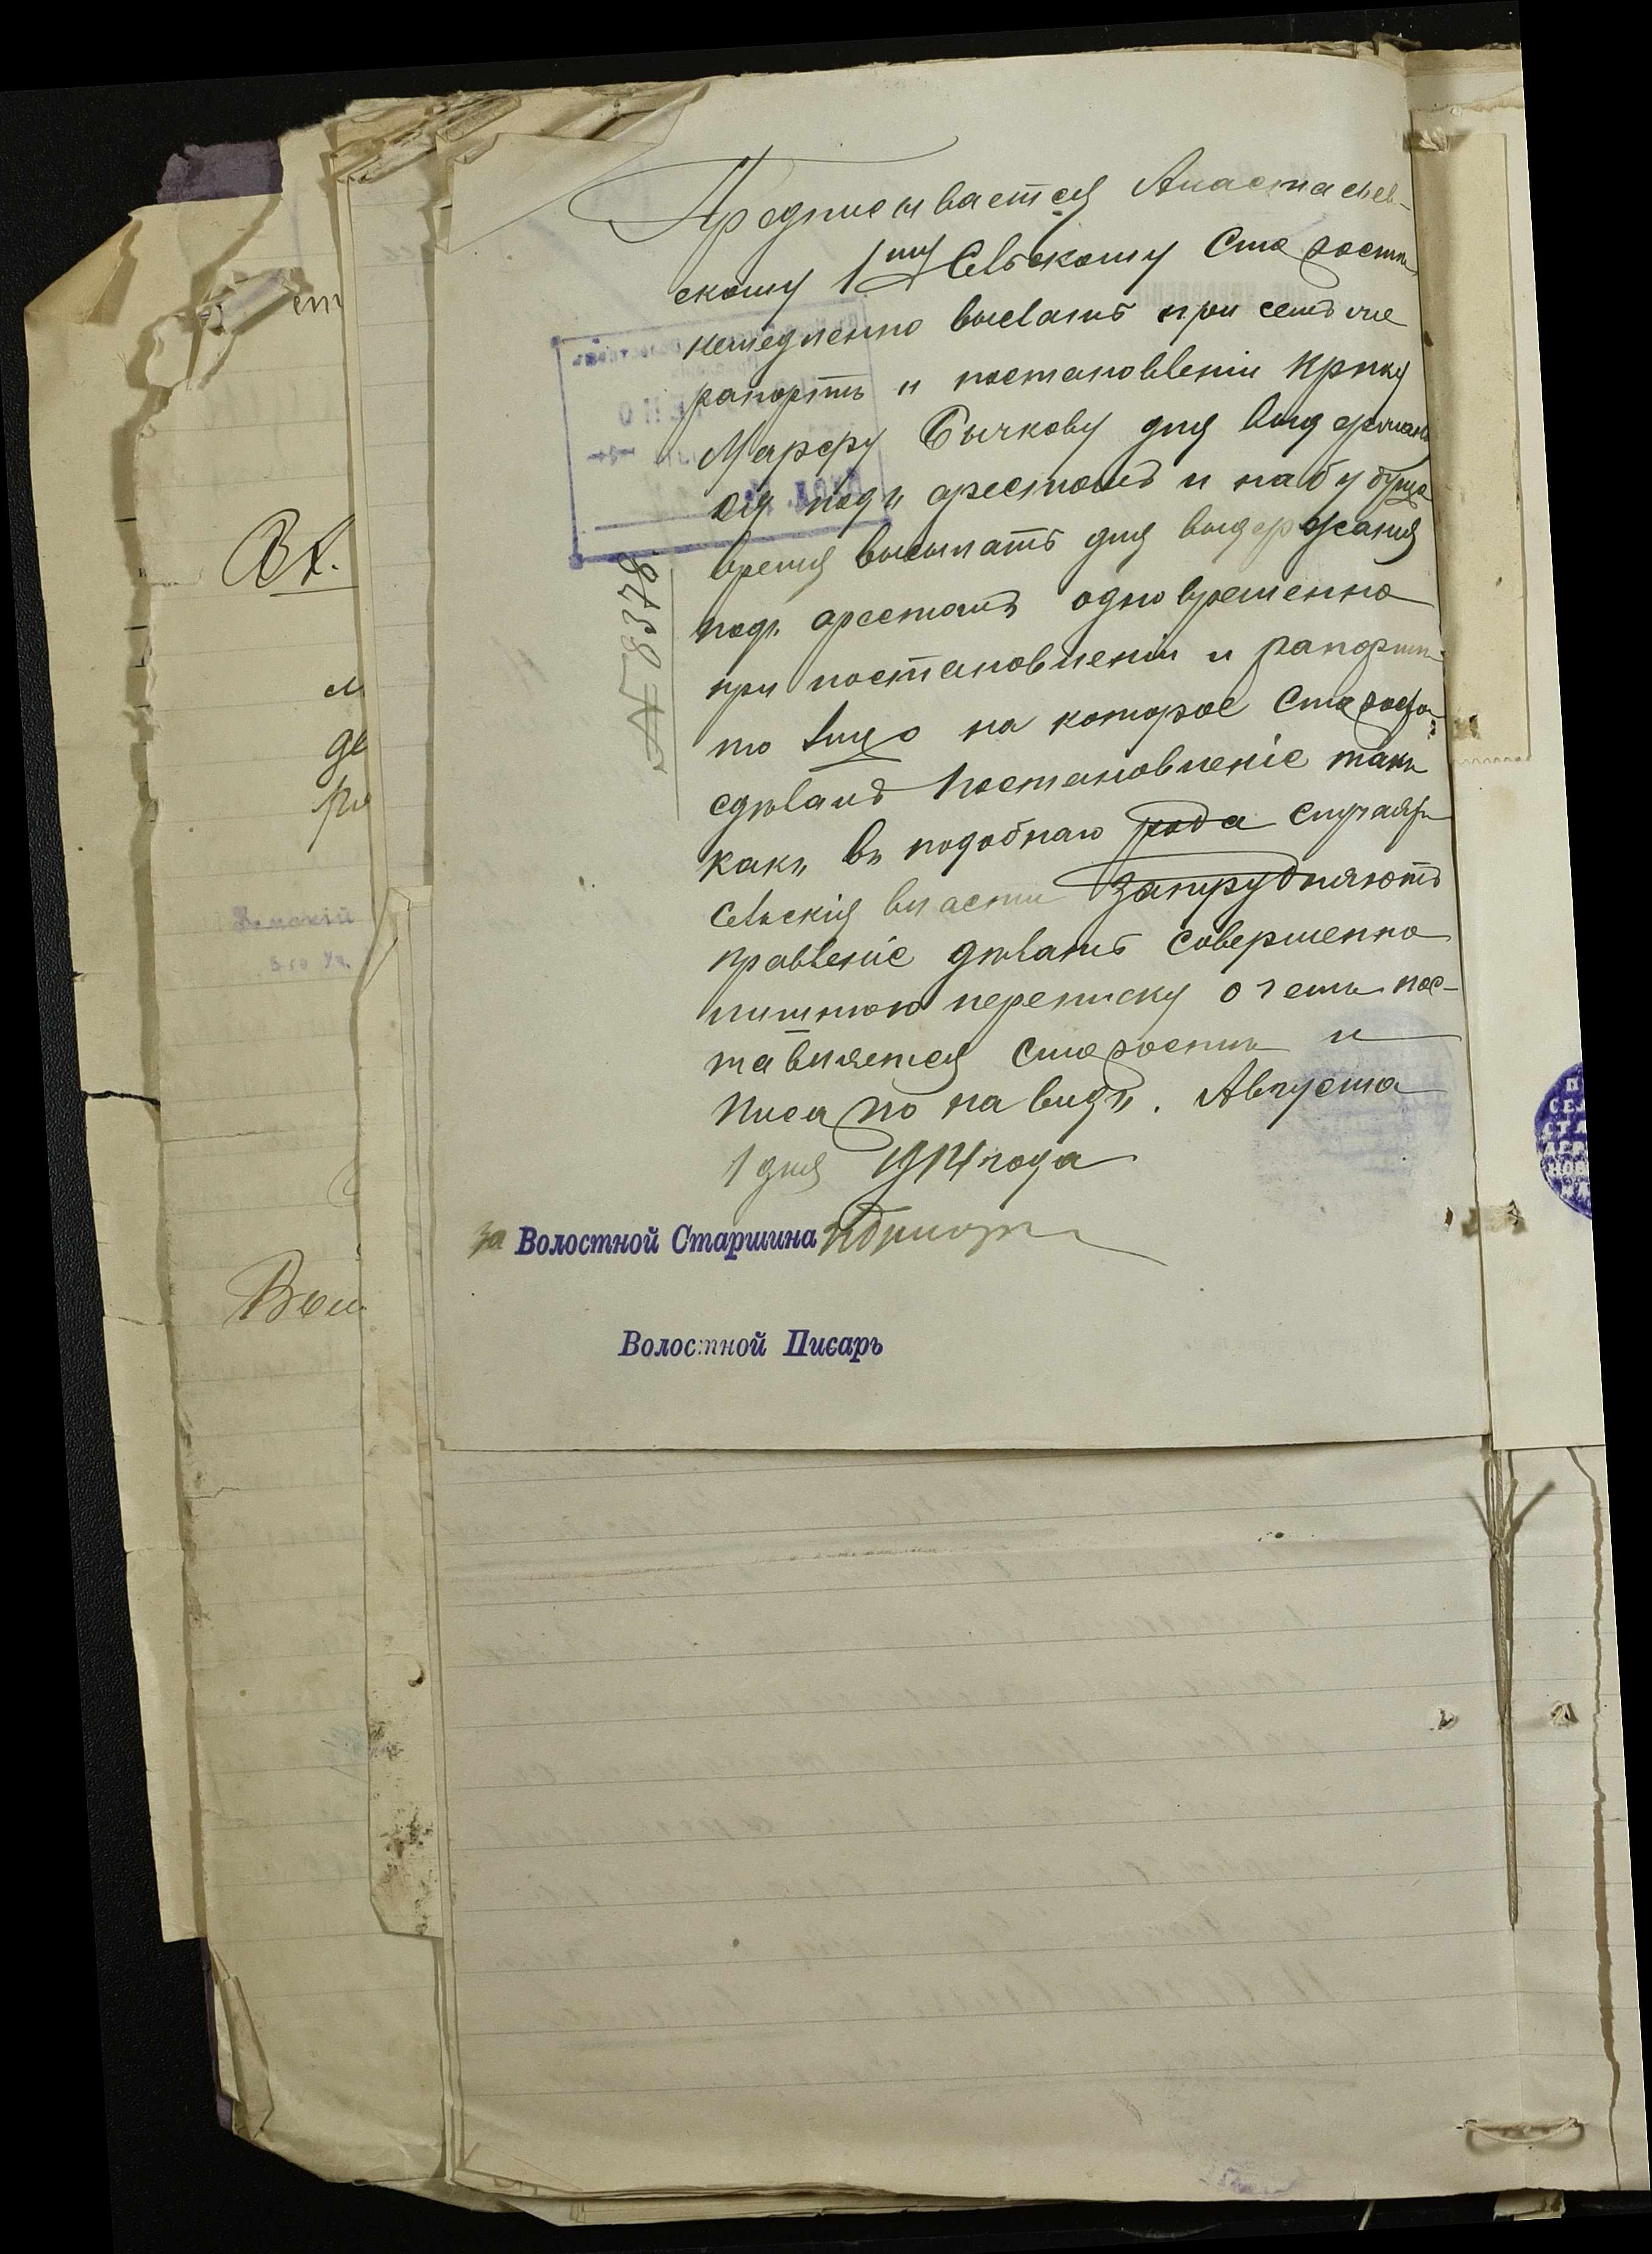 Предписывается Анастасьев-
скому 1му Сельскому Старостѣ
немедленно выслать при семъ же
рапортѣ и постановленіи Крнку
Марфу Бычкову для выдержан
ія подъ арестомъ и на будуще
время высылать для выдержанія
подъ арестомъ одновременно
при постановленіи и рапортѣ
то лицо на которое Старостою
сдѣлано постановленіе такъ
какъ въ подобнаго рода случаяхъ
сельскія власти затрудняютъ
правленіе дѣлать совершенно
лишнюю переписку о чемъ пос-
тавляется старостѣ и
писарю на видъ. Августа
1 дня 1914 года
№ 8378
за Волостной Старшина
Волостной Писарь
ет
Вх.
м
де
ра
Земскій
3 го Уч.
Вол